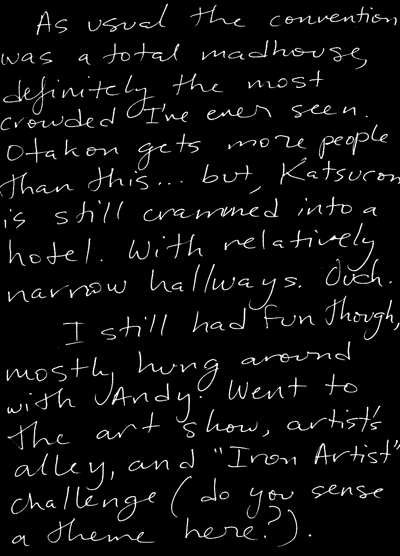 As usual the convention
was a total madhouse,
definitely the most
crowded I've ever seen.
Otakon gets more people
than this... but, Katsucon
is still crammed into a
hotel. With relatively
narrow hallways. Ouch.
I still had fun though,
mostly hung around
with Andy. Went to
the art show, artist's
alley, and "Iron Artist"
challenge (do you sense
a theme here?).